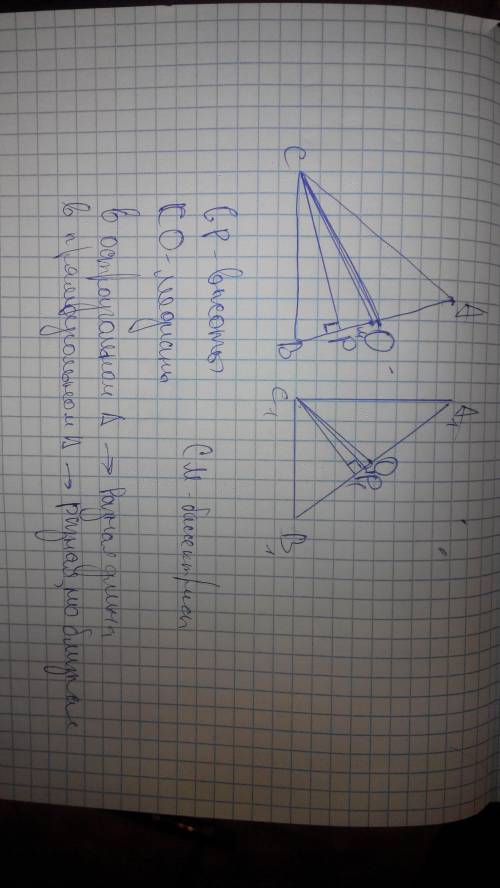 A
O
M
P
C
B
A₁
O
P
C₁
B₁
CP - высоты
CO - медианы
CM - биссектрисы
в остроугольном Δ → разная длина
в прямоугольном Δ → разная, но близкая